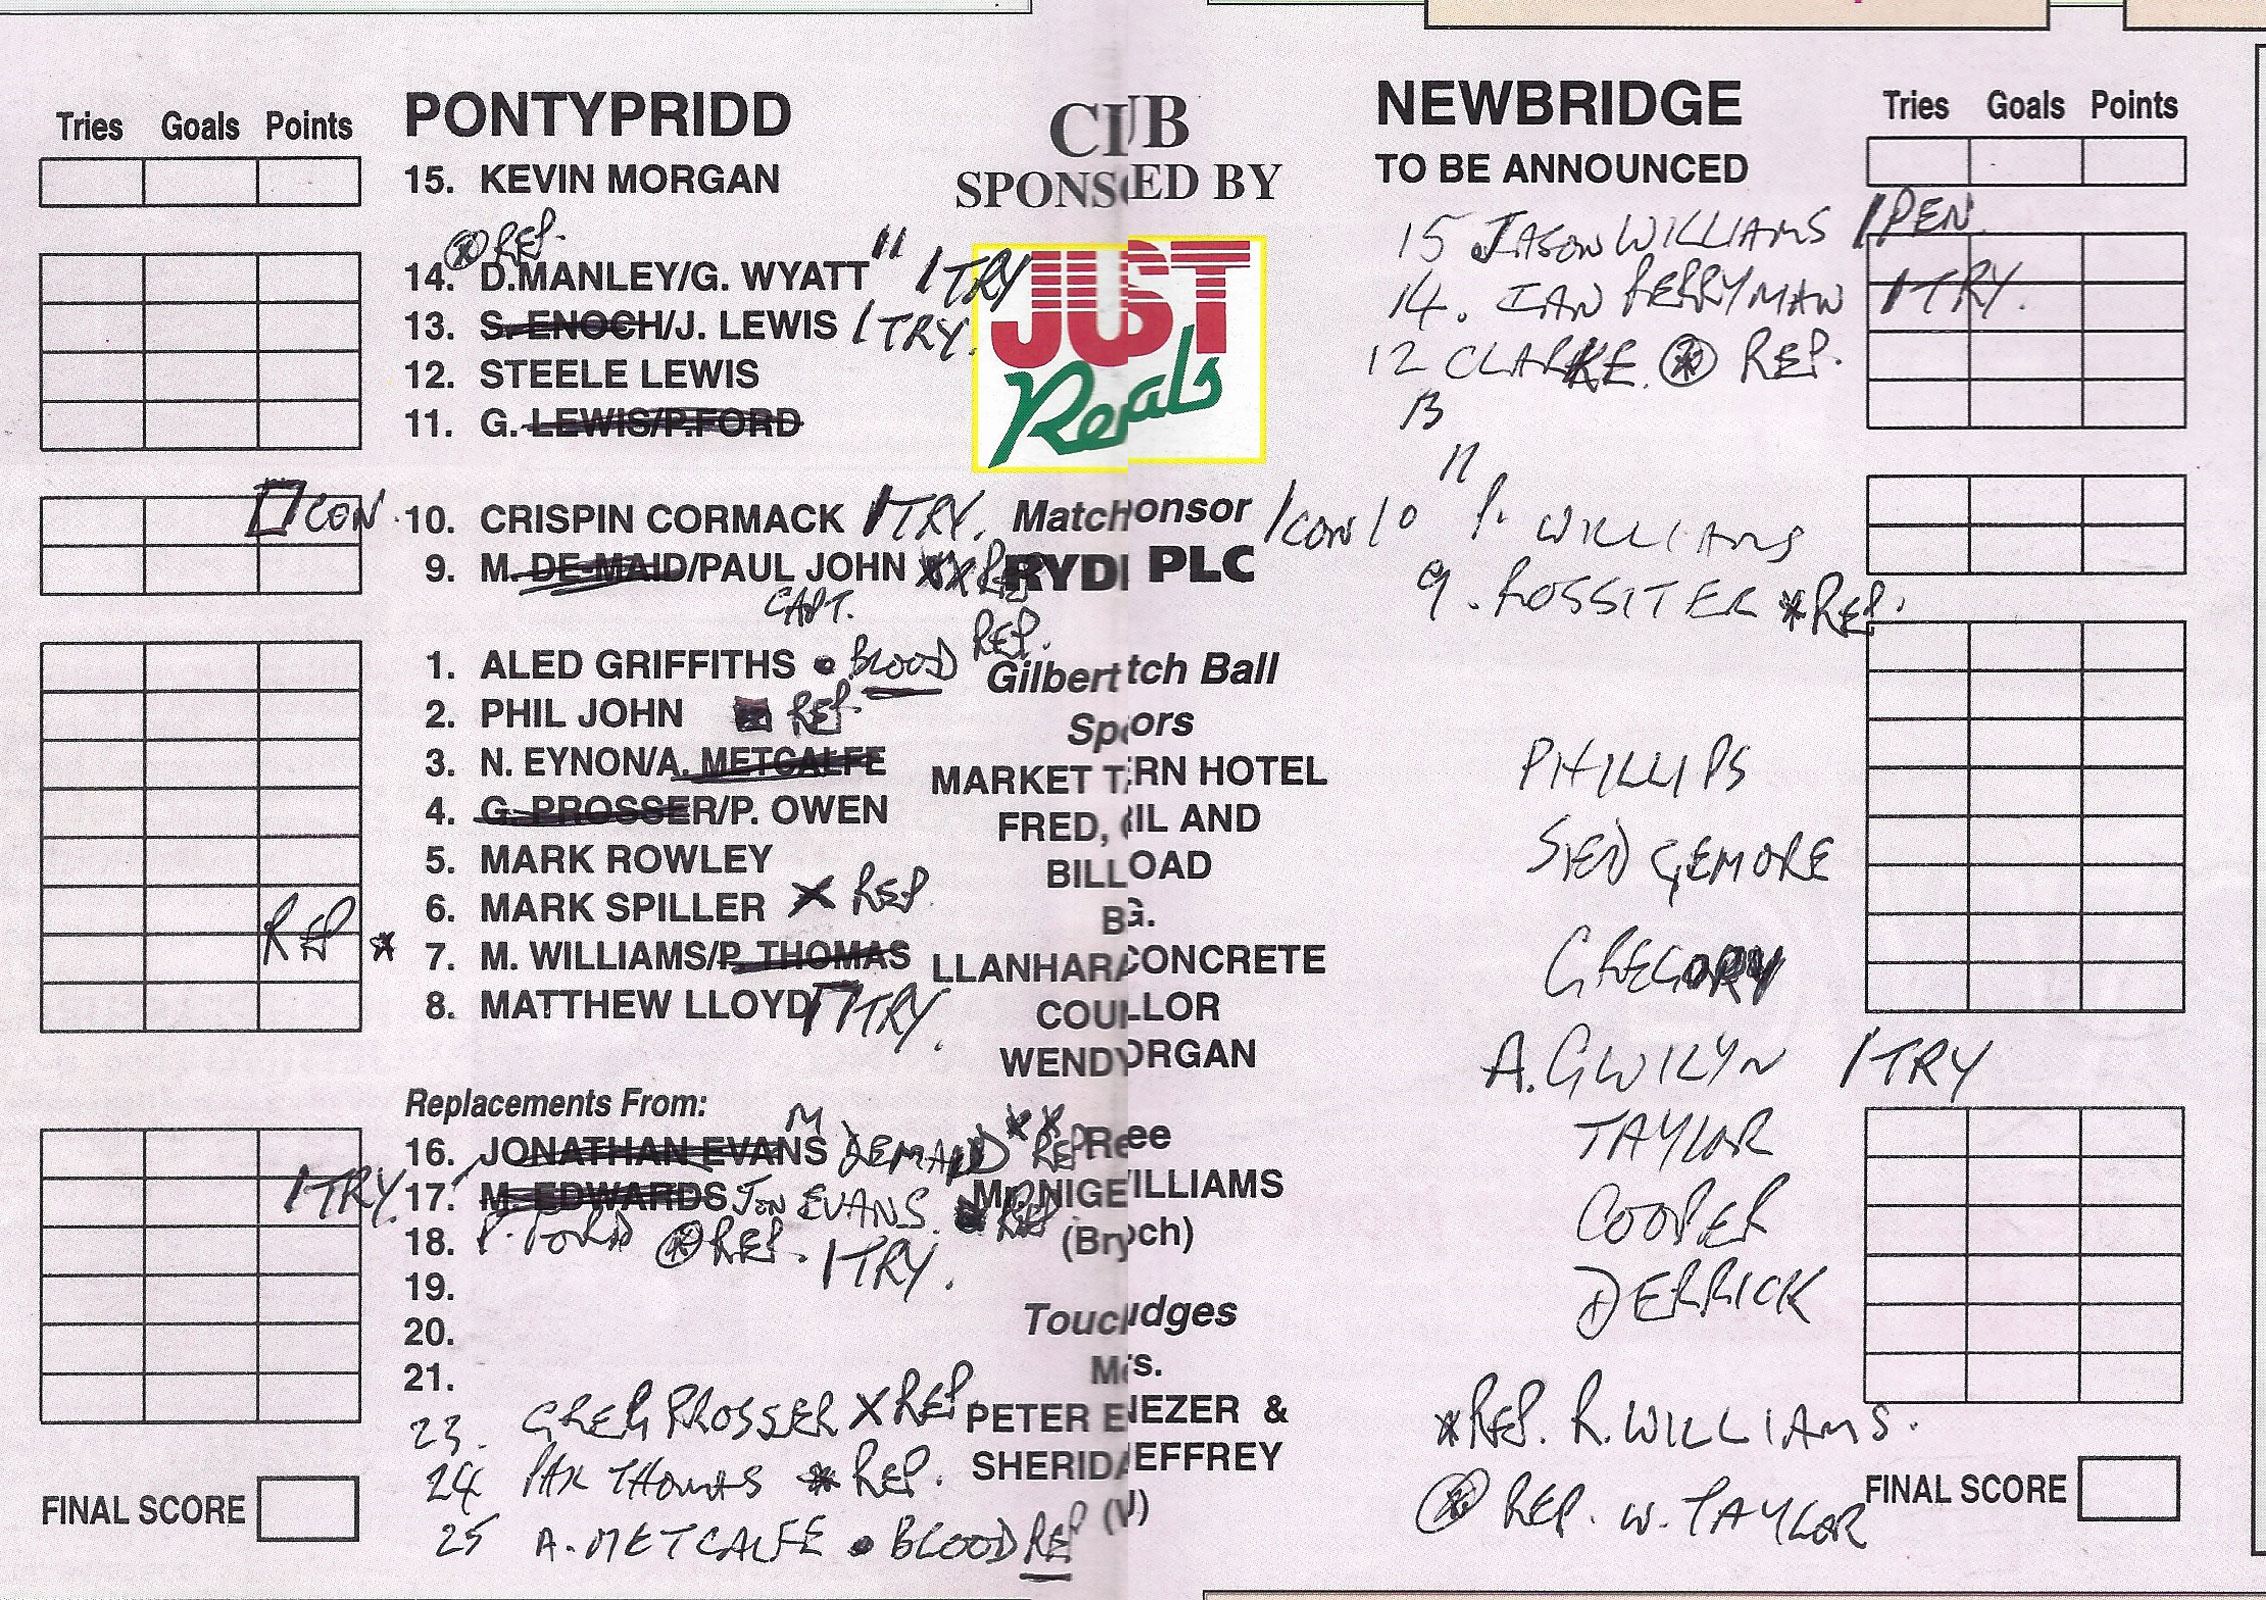 Tries Goals Points
PONTYPRIDD
15. KEVIN MORGAN
REP.
14. D.MANLEY/G. WYATT " 1 TRY
13. S. ENOCH/J. LEWIS 1 TRY.
12. STEELE LEWIS
11. G. LEWIS/P.FORD
CON. 10. CRISPIN CORMACK 1 TRY.
9. M. DE-MAID/PAUL JOHN XX REP
CAPT.
1. ALED GRIFFITHS • BLOOD REP.
2. PHIL JOHN REP.
3. N. EYNON/A. METCALFE
4. G. PROSSER/P. OWEN
5. MARK ROWLEY
6. MARK SPILLER X REP.
REP * 7. M. WILLIAMS/P. THOMAS
8. MATTHEW LLOYD TRY.
Replacements From:
16. JONATHAN EVANS M DEMAID XX REP
1 TRY. 17. M. EDWARDS JON EVANS. REP
18. P. FORD REP. 1 TRY.
19.
20.
21.
23. GREG PROSSER X REP.
24 PAX THOMAS * REP.
25 A. METCALFE • BLOOD REP
FINAL SCORE
CUB
SPONS ED BY
JUST
Rentals
Match onsor
RYD PLC
Gilbert tch Ball
Sp ors
MARKET T RN HOTEL
FRED, IL AND
BILL OAD
B G.
LLANHARA CONCRETE
COU LLOR
WENDY ORGAN
Re ee
Mr. NIGE ILLIAMS
(Bry och)
Touc udges
M s.
PETER E NEZER &
SHERIDA EFFREY
(W )
NEWBRIDGE
TO BE ANNOUNCED
Tries Goals Points
15 JASON WILLIAMS 1 PEN
14. IAN PERRYMAN 1 TRY.
12 CLARKE. REP.
13
11
1 CON 10 P. WILLIAMS
9. ROSSITER * REP.
PHILLIPS
SEDGEMORE
GREGORY
A. GWILYN 1 TRY
TAYLOR
COOPER
DERRICK
* REP. R. WILLIAMS.
REP. W. TAYLOR
FINAL SCORE